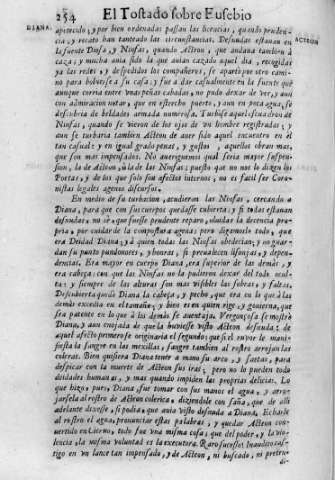 254 El Tostado sobre Eusebio
DIANA.
ACTEON
apetecido; y por bien ordenadas passan las boracias, quando pruden-
cia, y recato han tanteado las circunstancias. Desnudas estauan en
la fuente Diosa, y Ninfas, quando Acteon, que andaua tambien à
caza; y mucha auia sido la que auian cazado aquel dia, recogidas
ya las redes, y despedidos los compañeros, se apartò por otro cami-
no para boluerse a su casa, y fue a dar casualmente en la fuente que
aunque corria entre vnas peñas cabadas, no pudo dexar de ver, y aun
con admiracion notar, que en estrecho puerto, y aun en poca agua, se
descubria de beldades armada numerosa. Turbòse aquel esquadron de
Ninfas, quando se vieron de los ojos de vn hombre registradas; y
aun se turbaria tambien Acteon de auer sido aquel encuentro en èl
tan casual: y en igual grado penas, y gustos, aquellos obran mas,
que son mas impensados. No aueriguemos qual seria mayor suspen-
sion, la de Acteon, ù la de las Ninfas; puesto que no nos lo dizen los
Poetas, y de los que solo son afectos internos, no es facil ser Coro-
nistas legales agenos discursos.
En medio de su turbacion, acudieron las Ninfas, cercando a
Diana, para que con sus cuerpos quedasse cubierta; y si todas estauan
desnudas, no sè, que fuesse prudente reparo, oluidar la decencia pro-
pria, por cuidar de la compostura agena: pero digamoslo todo, que
era Deidad Diana; y à quien todas las Ninfas obedecian; y no guar-
dan su punto pundonores, y honras, si preualecen lisonjas, y depen-
dencias. Era mayor en cuerpo Diana, era superior de las demàs, y
era cabeça: con que las Ninfas no la pudieron dexar del todo ocul-
ta; y siempre de las alturas son mas visibles las sobras, y faltas.
Descubierta quedò Diana la cabeça, y pecho, que era en lo que a las
demàs excedia en el tamaño; y bien era en quien rige, y gouierna, que
sea patente en lo que à los demàs se auentaja. Vergonçosa se mostrò
Diana, y aun enojada de que la huuiesse visto Acteon desnuda: de
aquel afecto primero se originaria el segundo; que si el rubor de mani-
fiesta la sangre en las mexillas, sangre tambien al rostro arrojan las
coleras. Bien quisiera Diana tener a mano su arco, y saetas, para
despicar con la muerte de Acteon sus iras; pero no lo pueden todo
deidades humanas, y mas quando impiden las proprias delicias. Lo
que hizo, pues, Diana fue tomar con sus manos el agua, y arro-
jarsela al rostro de Acteon colerica, diziendole con saña, que de alli
adelante dixesse, si podia, que auia visto desnuda a Diana. Echarle
al rostro el agua, pronunciar estas palabras, y quedar Acteon con-
uertido en Cieruo, todo fue vna misma cosa; que del poder, y la vio-
lencia, la misma voluntad es la executora. Raro sucesso! Inaudito cas-
tigo en vn lance tan impensado, y de Acteon, ni buscado, ni preten-
di-